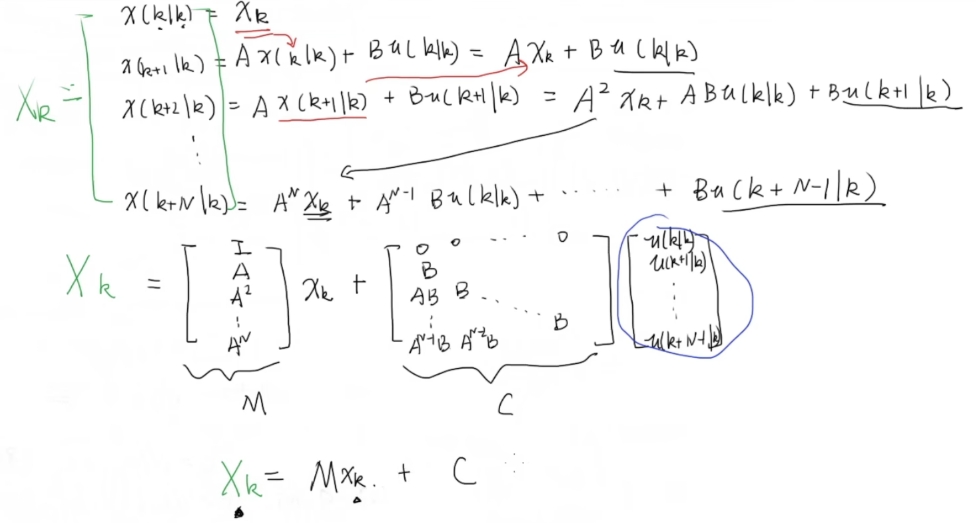 x(k|k) = xk
x(k+1|k) = A x(k|k) + B u(k|k) = A xk + B u(k|k)
Xk = x(k+2|k) = A x(k+1|k) + B u(k+1|k) = A² xk + A B u(k|k) + B u(k+1|k)
⋮
x(k+N|k) = A^N xk + A^N-1 B u(k|k) + ...... + B u(k+N-1|k)
Xk = [ I A A² ⋮ A^N ] xk + [ 0 0 ... 0 B AB B ... ⋮ B A^N-1B A^N-2B ] [ u(k|k) u(k+1|k) ⋮ u(k+N-1|k) ]
M C
Xk = M xk. + C